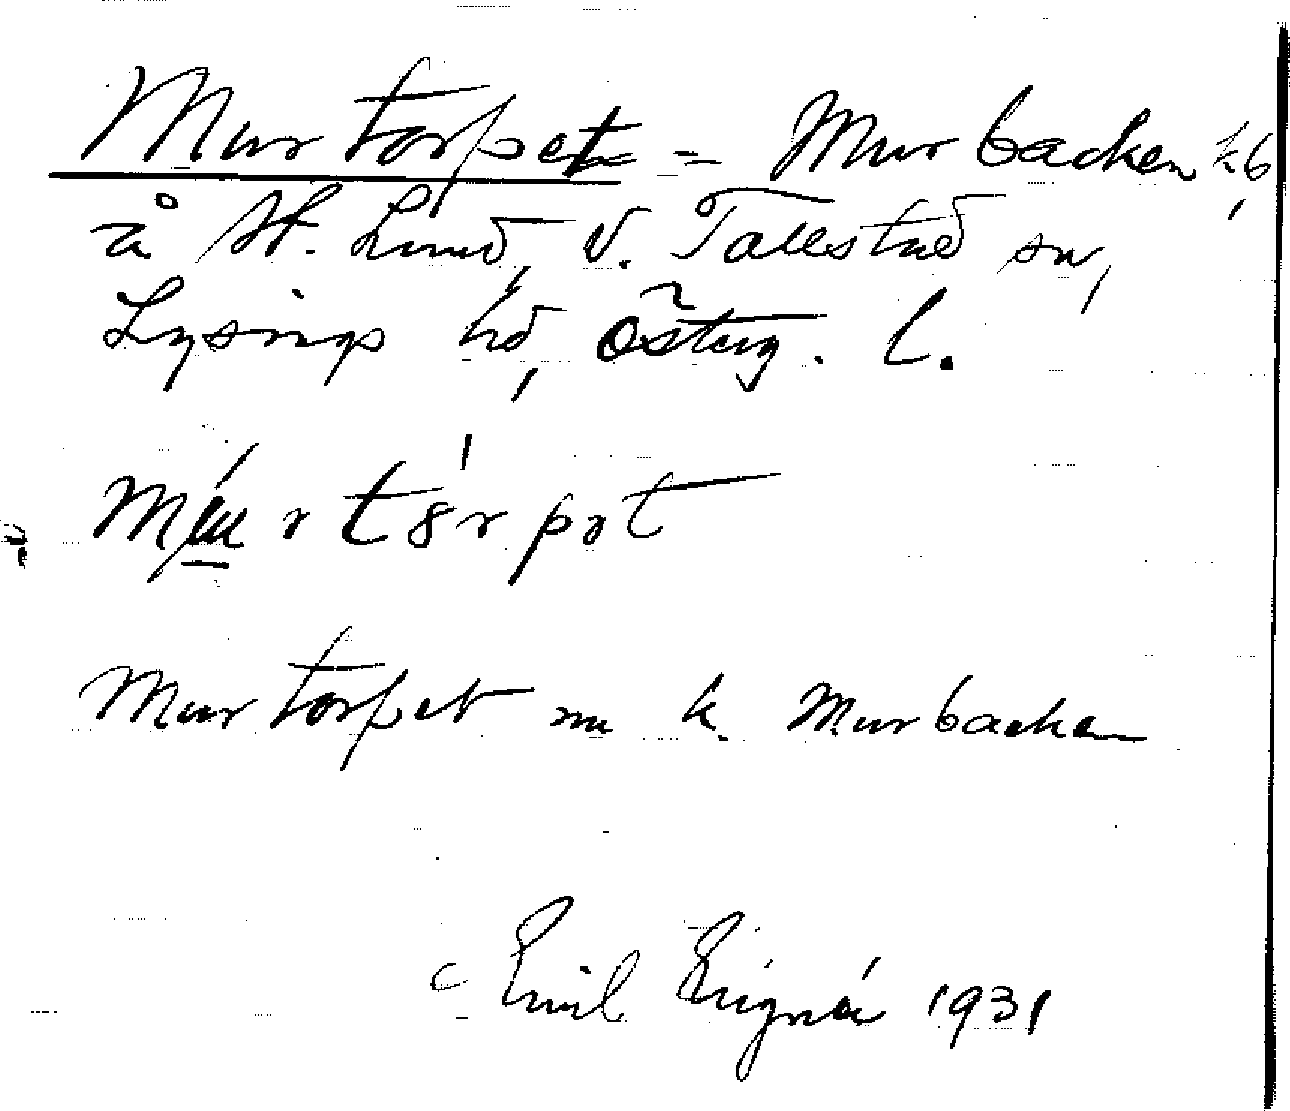 Murtorpet = Murbacken
å St. Lund, V. Tollstad sn,
Lysings hd, Österg. l.
Murtorpet nu k. Murbacken
Emil Lignér 1931